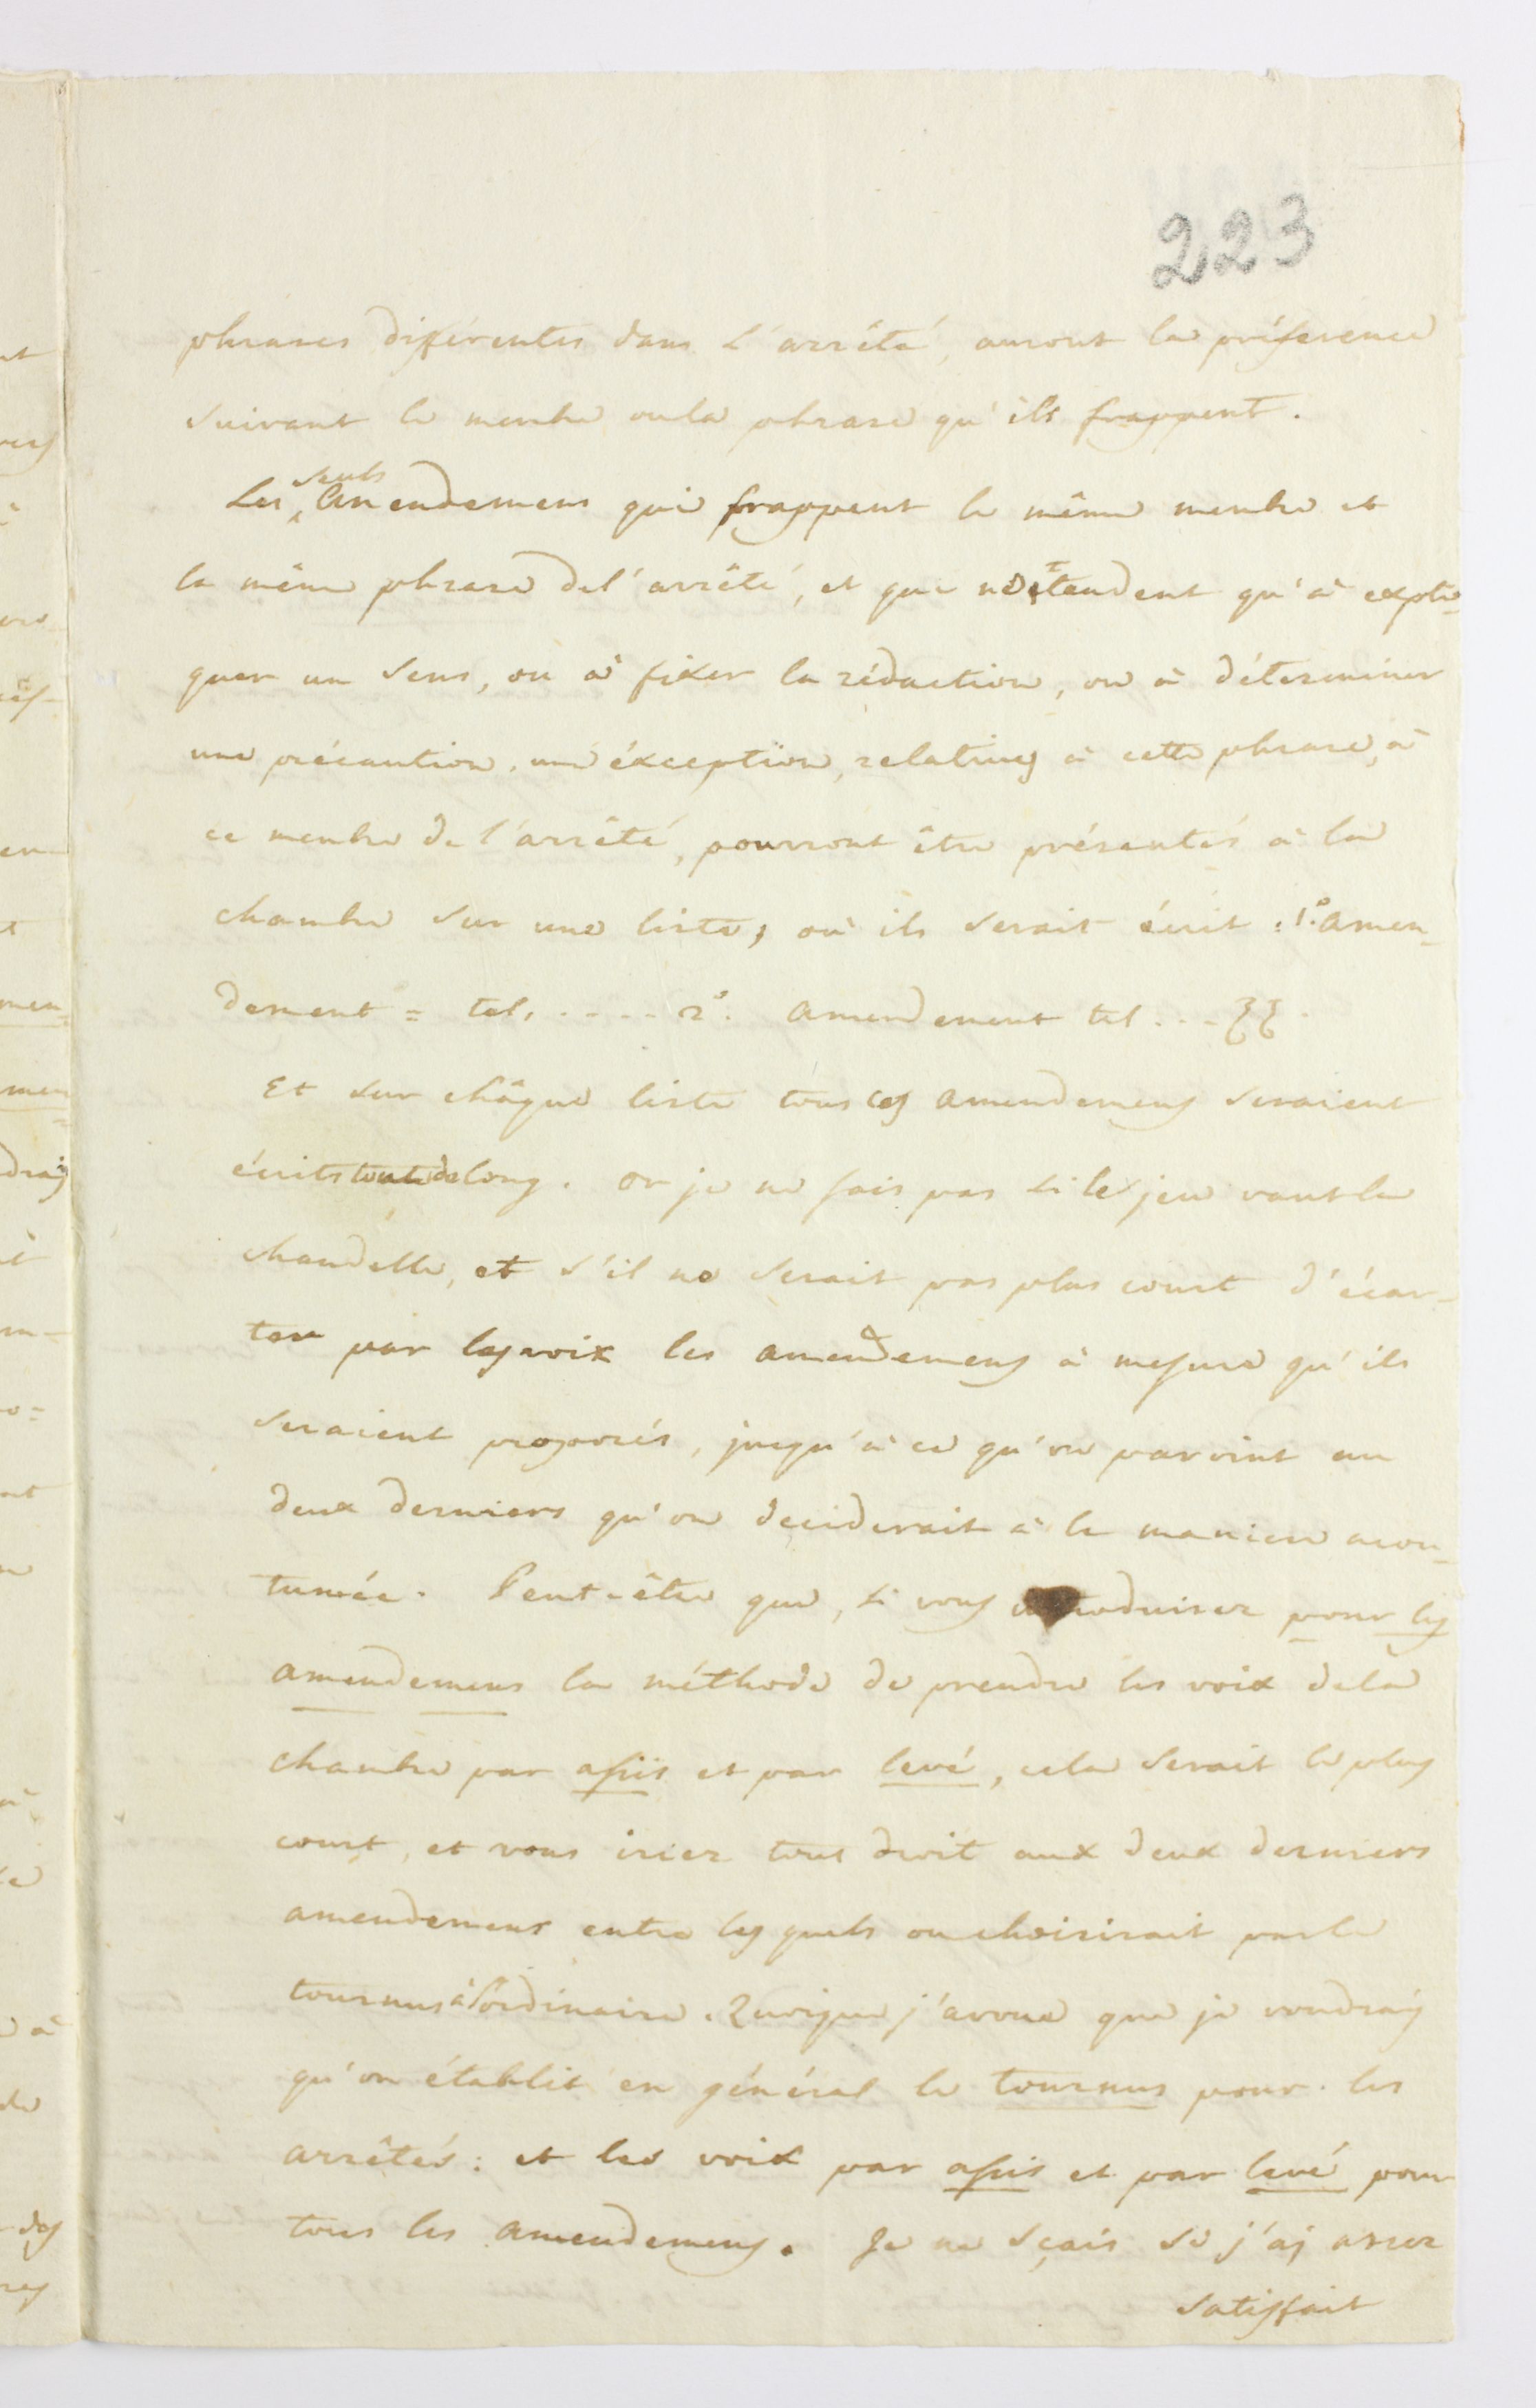 223
phrases différentes dans l'arrêté, auront la préférence
suivant le membre ou la phrase qu'ils frappent.
seuls
Les amendemens qui frappent le même membre et
la même phrase de l'arrêté, et qui ne tendent qu'à expli-
quer un sens, ou à fixer la rédaction, ou à déterminer
une précaution, une éxception, relatives à cette phrase, à
ce membre de l'arrêté, pourront être présentés à la
chambre sur une liste, où ils serait écrit : 1.° amen-
dement = tel, .... 2°. amendement tel ...
Et sur châque liste tous ces amendemens seraient
écrits tout de long. or je ne sais pas si le jeu vaut la
chandelle, et s'il ne serait pas plus court d'écar-
ter par les voix les amendemens à mesure qu'ils
seraient proposés, jusqu'à ce qu'on parvint au
deux derniers qu'on deciderait à la maniere acou-
tumée. Peut-être que, si vous introduisez pour les
amendemens la méthode de prendre les voix de la
chambre par assis et par levé, cela serait le plus
court, et vous iriez tout droit aux deux derniers
amendemens entre les quels on choisirait par le
tournus à l'ordinaire. Quoique j'avoue que je voudrais
qu'on établit en général le tournus pour les
arrêtés : et les voix par assis et par levé pour
tous les amendemens. Je ne sçais si j'ai assez
satisfait